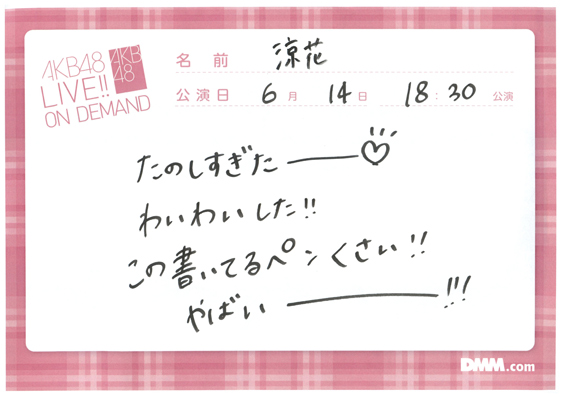 AKB48
LIVE!!
ON DEMAND
AKB
48
名前 涼花
公演日 6月 14日 18:30 公演
たのしすぎたーー♡
わいわいした!!
この書いてるペンくさい!!
やばいーー!!!
DMM.com